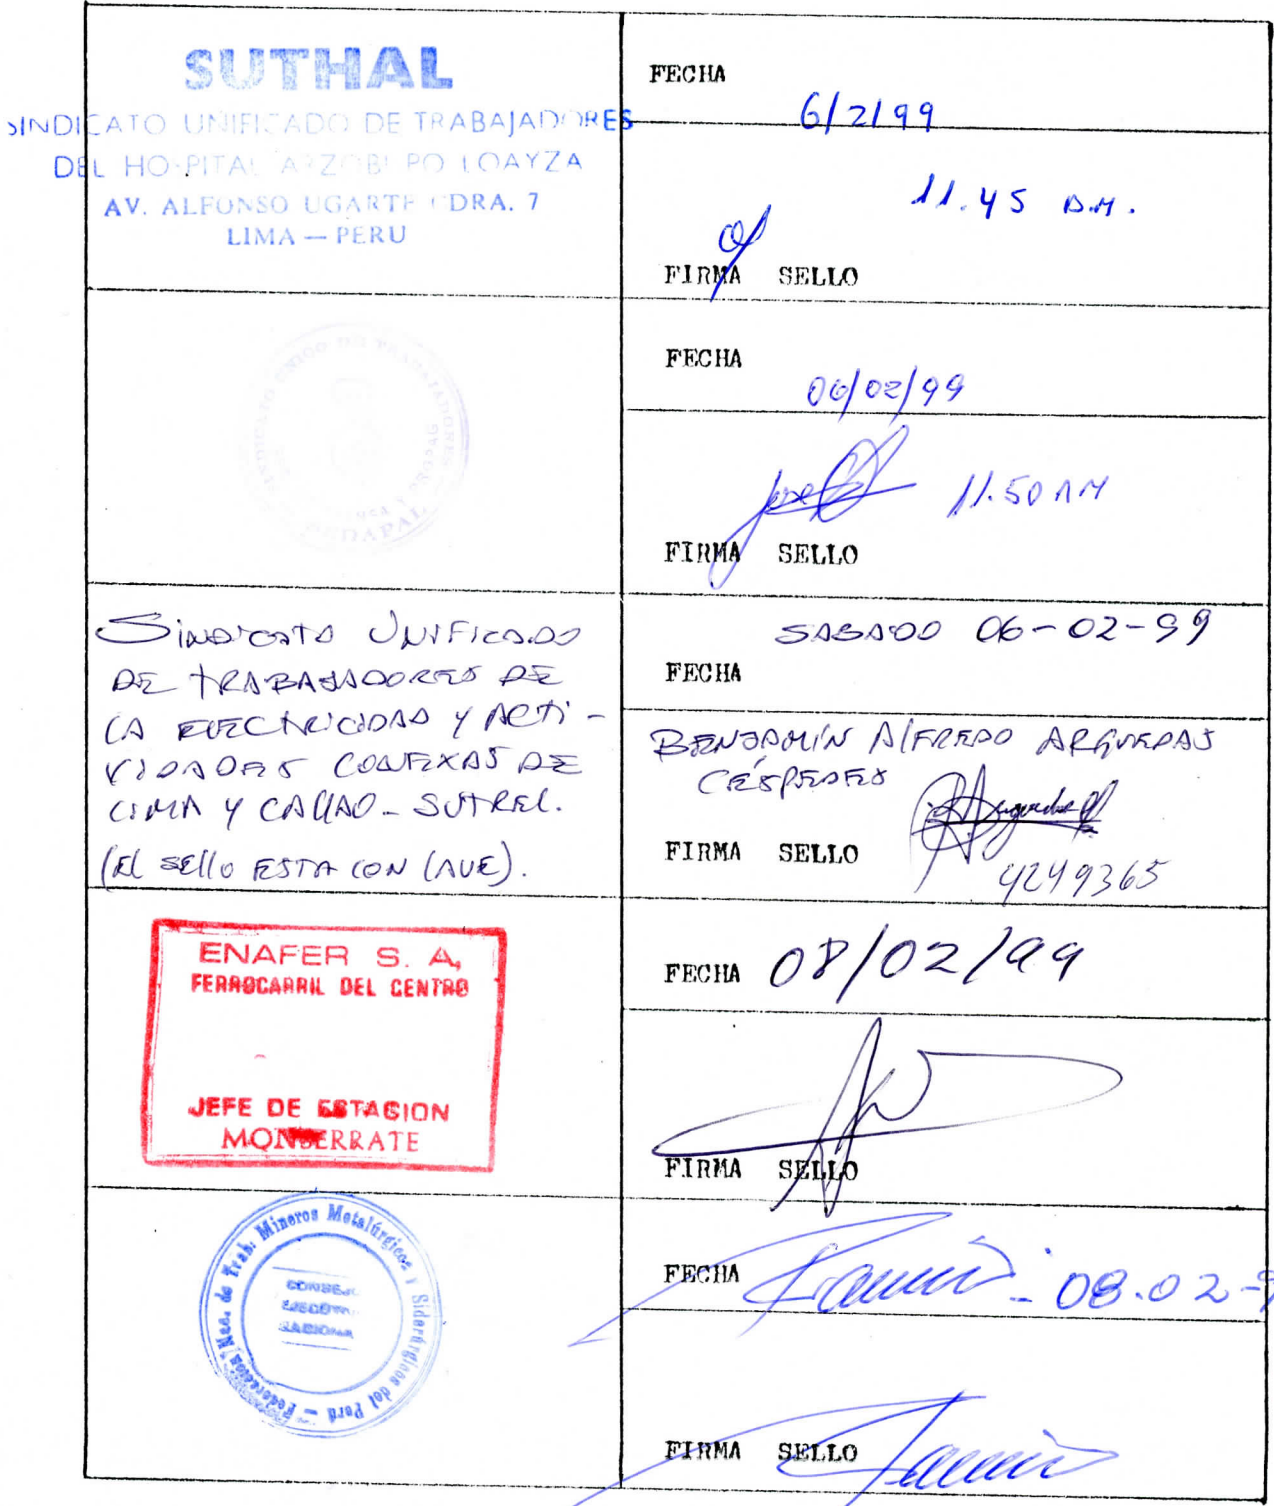 SUTHAL
SINDICATO UNIFICADO DE TRABAJADORES
DEL HOSPITAL ARZOBISPO LOAYZA
AV. ALFONSO UGARTE CDRA. 7
LIMA — PERU
FECHA
6/2/99
11.45 A.M.
FIRMA SELLO
SINDICATO UNICO DE TRABAJADORES
SEDAPAL
FECHA
06/02/99
11.50 AM
FIRMA SELLO
SINDICATO UNIFICADO
DE TRABAJADORES DE
LA ELECTRICIDAD Y ACTI-
VIDADES CONEXAS DE
LIMA Y CALLAO - SUTREL.
(El sello ESTA CON LAVE).
SABADO 06-02-99
FECHA
BENJAMÍN AlFREDO ARGUEDAS
CÉSPEDES
FIRMA SELLO
4249365
ENAFER S. A.
FERROCARRIL DEL CENTRO
JEFE DE ESTACION
MONSERRATE
FECHA 08/02/99
FIRMA SELLO
Federación Nac. de Trab. Mineros Metalúrgicos i Siderúrgicos del Perú –
CONSEJO
EJECUTIVO
NACIONAL
FECHA
- 08.02-9
FIRMA SELLO